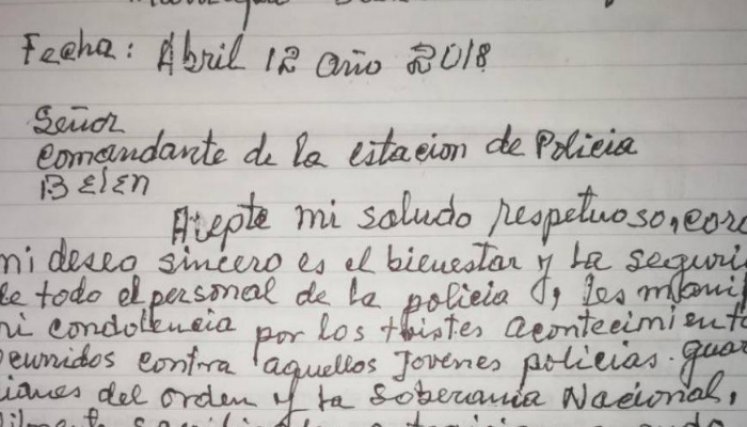 Fecha: Abril 12 año 2018
Señor
Comandante de la estacion de Policia
Belen
Acepte mi saludo respetuoso, cord
mi deseo sincero es el bienestar y la seguri
de todo el personal de la policia
mi condolencia por los tristes acontecimiento
ocurridos contra aquellos jovenes policias. guar
dianes del orden y la soberania Nacional,